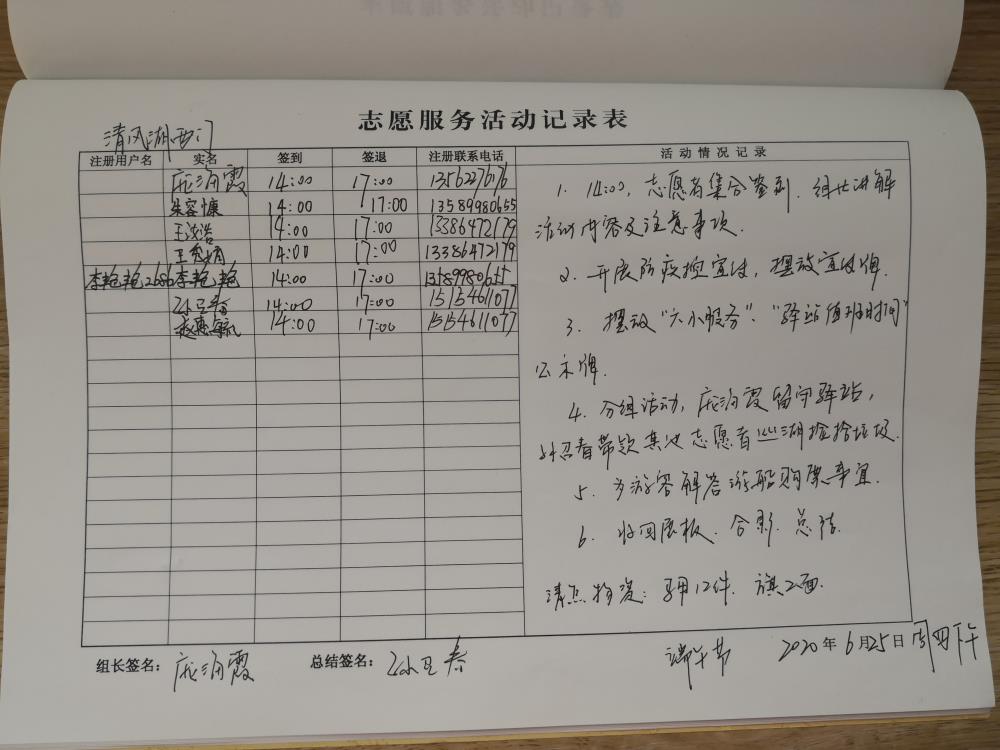 志愿服务活动记录表
清风湖西门
注册用户名 实名 签到 签退 注册联系电话 活动情况记录
庞海霞 14:00 17:00 13562276176
朱容慷 14:00 17:00 13589980655
王浩 14:00 17:00 13386472179
王秀娟 14:00 17:00 13386472179
李艳艳2686 李艳艳 14:00 17:00 13589980655
孙卫春 14:00 17:00 15154611077
赵惠敏 14:00 17:00 15154611077
1. 14:00, 志愿者集合签到. 组长讲解
活动内容及注意事项.
2. 开展防疫控宣传, 摆放宣传牌.
3. 摆放"六小服务"、"驿站值班时间"
公示牌.
4. 分组活动, 庞海霞留守驿站,
孙卫春带领其他志愿者巡湖捡拾垃圾.
5. 为游客解答游船购票事宜.
6. 收回展板. 合影. 总结.
清点物资: 马甲12件. 旗2面.
组长签名: 庞海霞 总结签名: 孙卫春 端午节 2020年6月25日周四下午